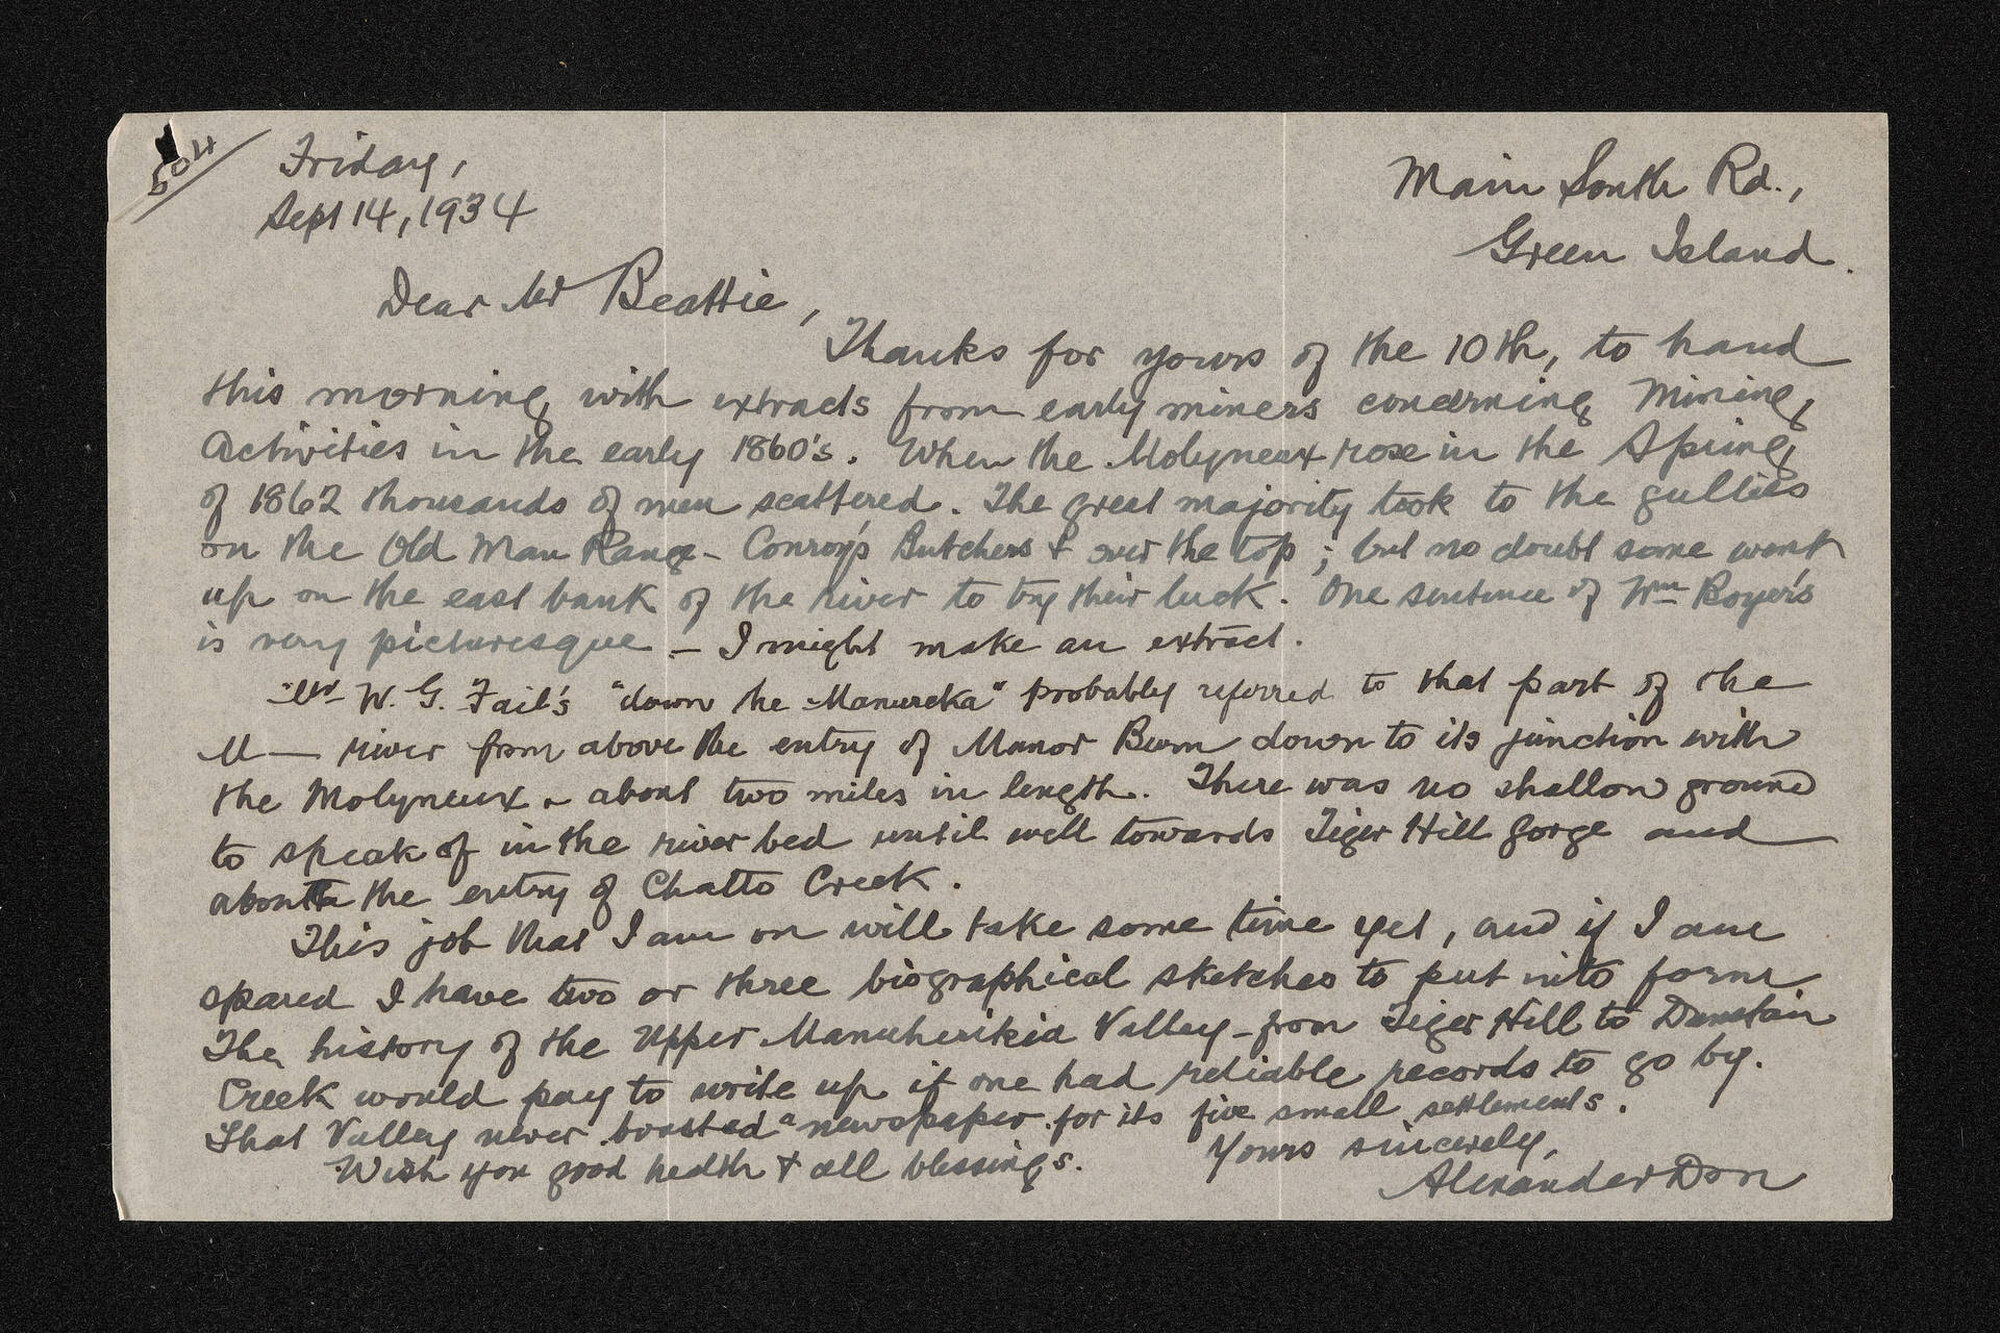 504
Friday,
Sept 14, 1934
Main South Rd.,
Green Island.
Dear Mr Beattie,
Thanks for yours of the 10th, to hand
this morning, with extracts from early miners concerning Mining
Activities in the early 1860's. When the Molyneux rose in the Spring
of 1862 thousands of men scattered. The great majority took to the gullies
on the Old Man Range - Conroy's Butchers & over the top; but no doubt some went
up on the east bank of the river to try their luck. One sentence of Wm Boyer's
is very picturesque - I might make an extract.
Mr W. G. Fail's "down the Manureka" probably referred to that part of the
M— river from above the entry of Manor Burn down to its junction with
the Molyneux - about two miles in length. There was no shallow ground
to speak of in the river bed until well towards Tiger Hill Gorge and
about the entry of Chatto Creek.
This job that I am on will take some time yet, and if I am
spared I have two or three biographical sketches to put into form
The history of the Upper Manuherikia Valley - from Tiger Hill to Dunstan
Creek would pay to write up if one had reliable records to go by.
That Valley never boasted a newspaper for its five small settlements.
Wish you good health & all blessings.
Yours sincerely,
Alexander Don